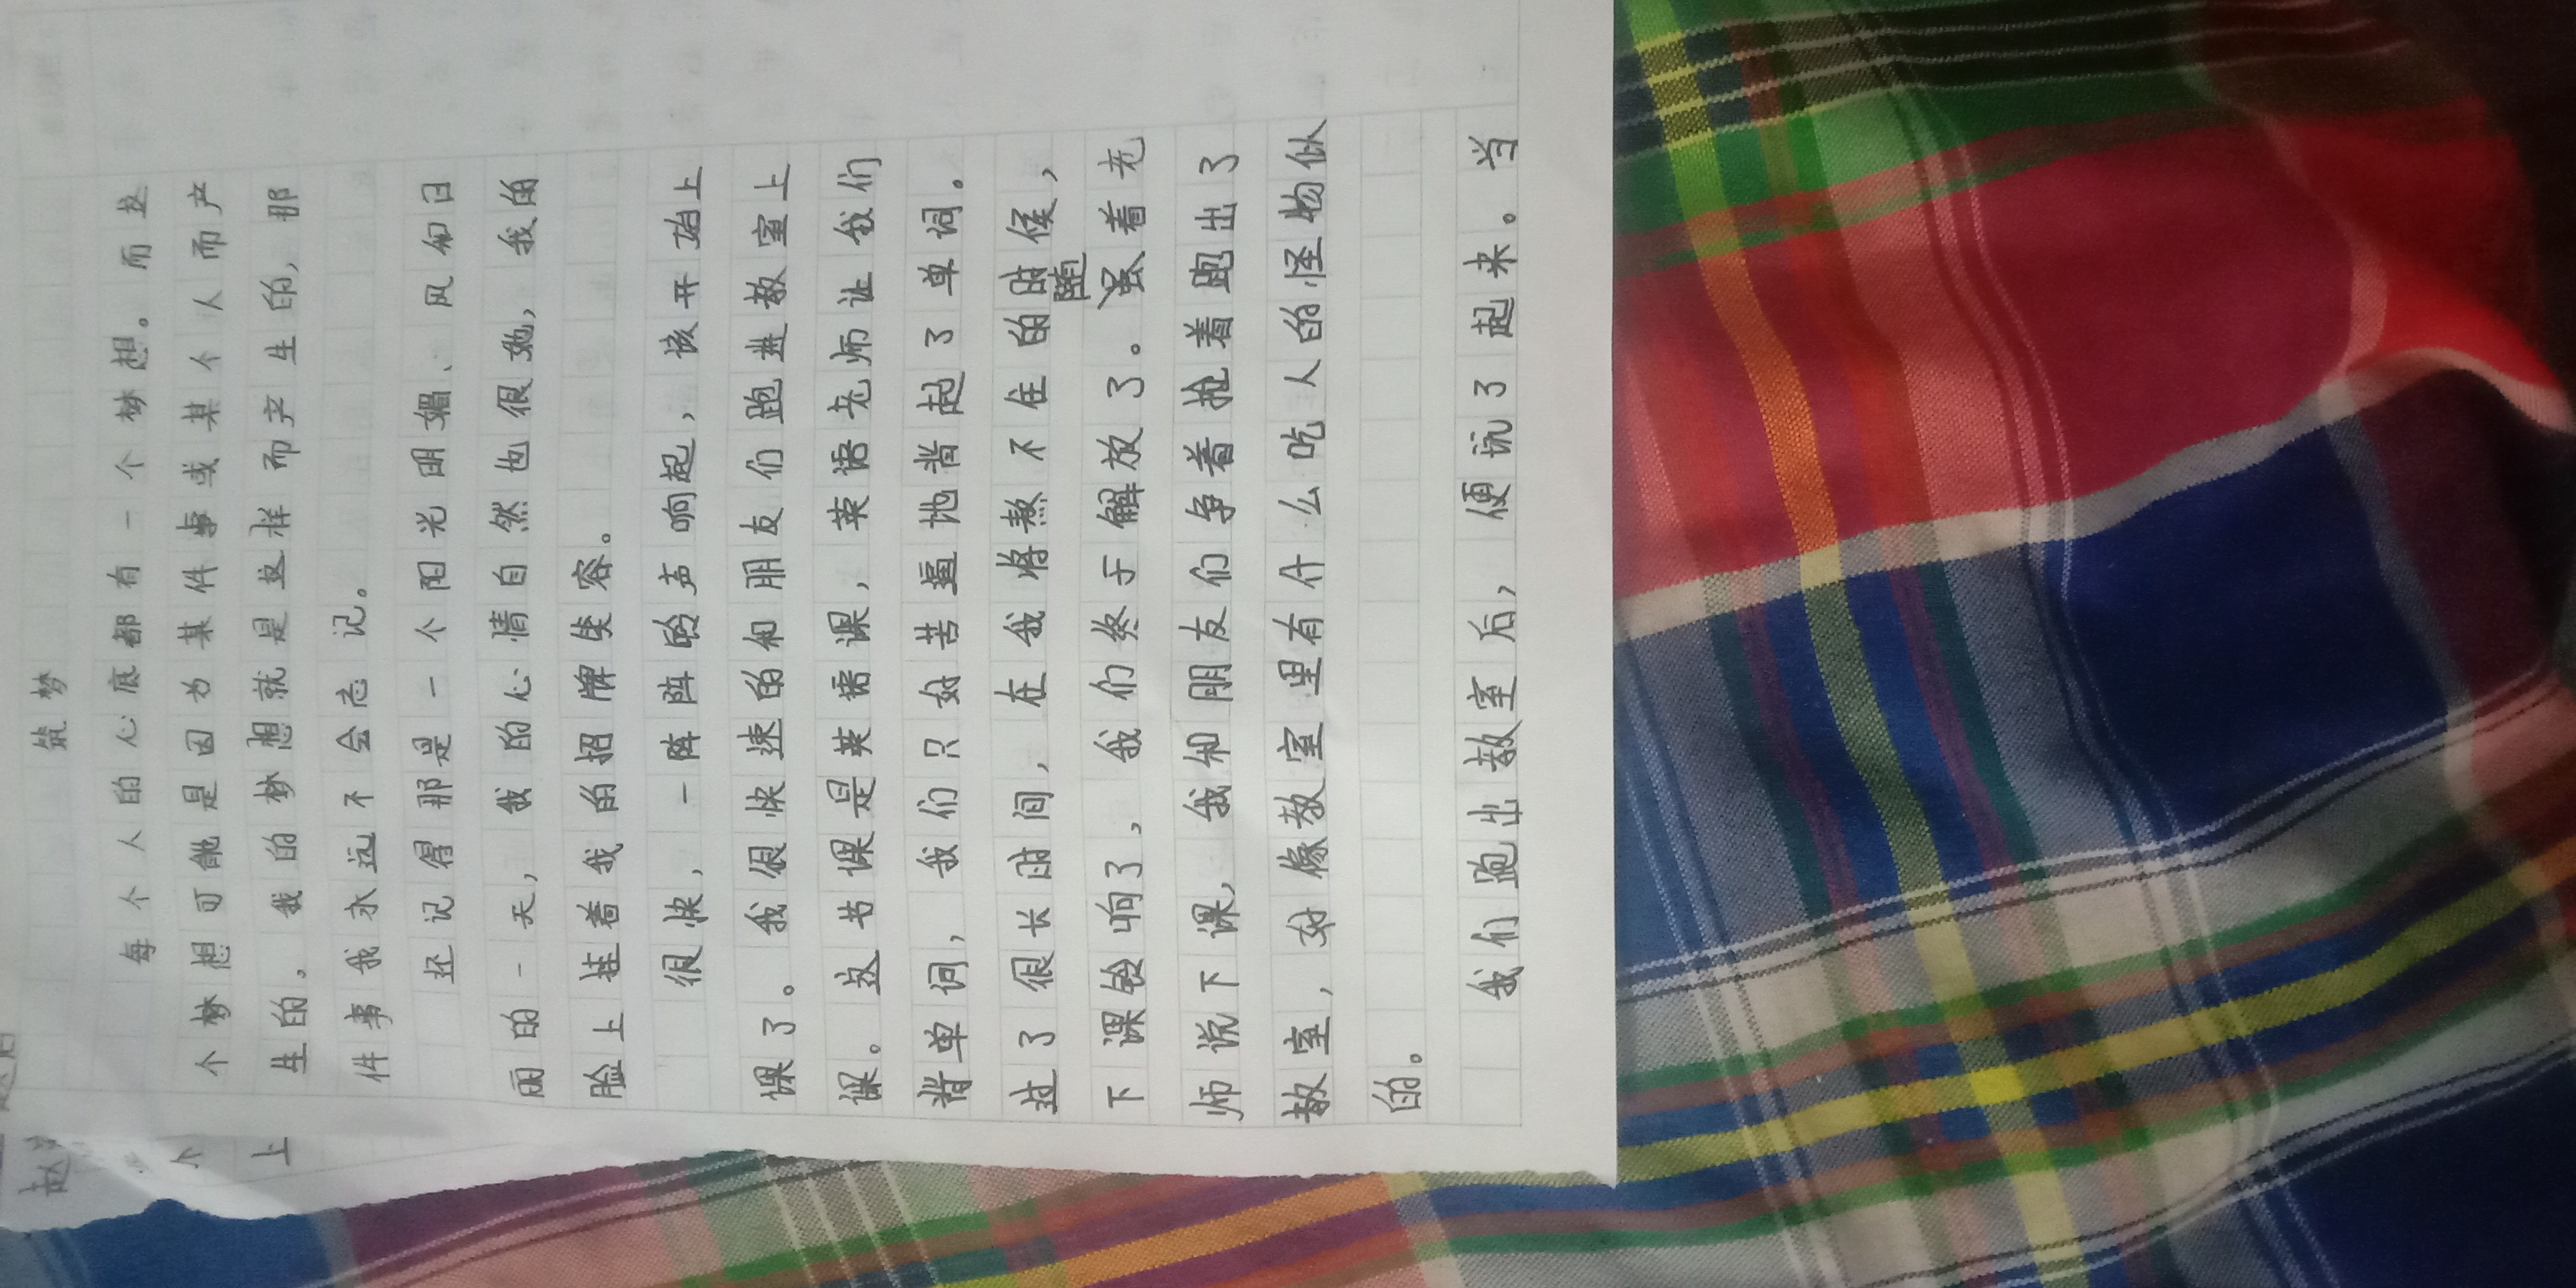 筑梦
每个人的心底都有一个梦想。而这
个梦想可能是因为某件事或某个人而产
生的,我的梦想就是这样而产生的,那
件事我永远不会忘记。
还记得那是一个阳光明媚、风和日
丽的一天,我的心情自然也很好,我的
脸上挂着我的招牌笑容。
很快,一阵阵铃声响起,该开始上
课了。我很快速的和朋友们跑进教室上
课。这节课是英语课,英语老师让我们
背单词,我们只好苦逼地背起了单词。
过了很长时间,在我将熬不住的时候,
下课铃响了,我们终于解放了。随着老
师说下课,我和朋友们争着抢着跑出了
教室,好像教室里有什么吃人的怪物似
的。
我们跑出教室后,便玩了起来。当
赵
个
上